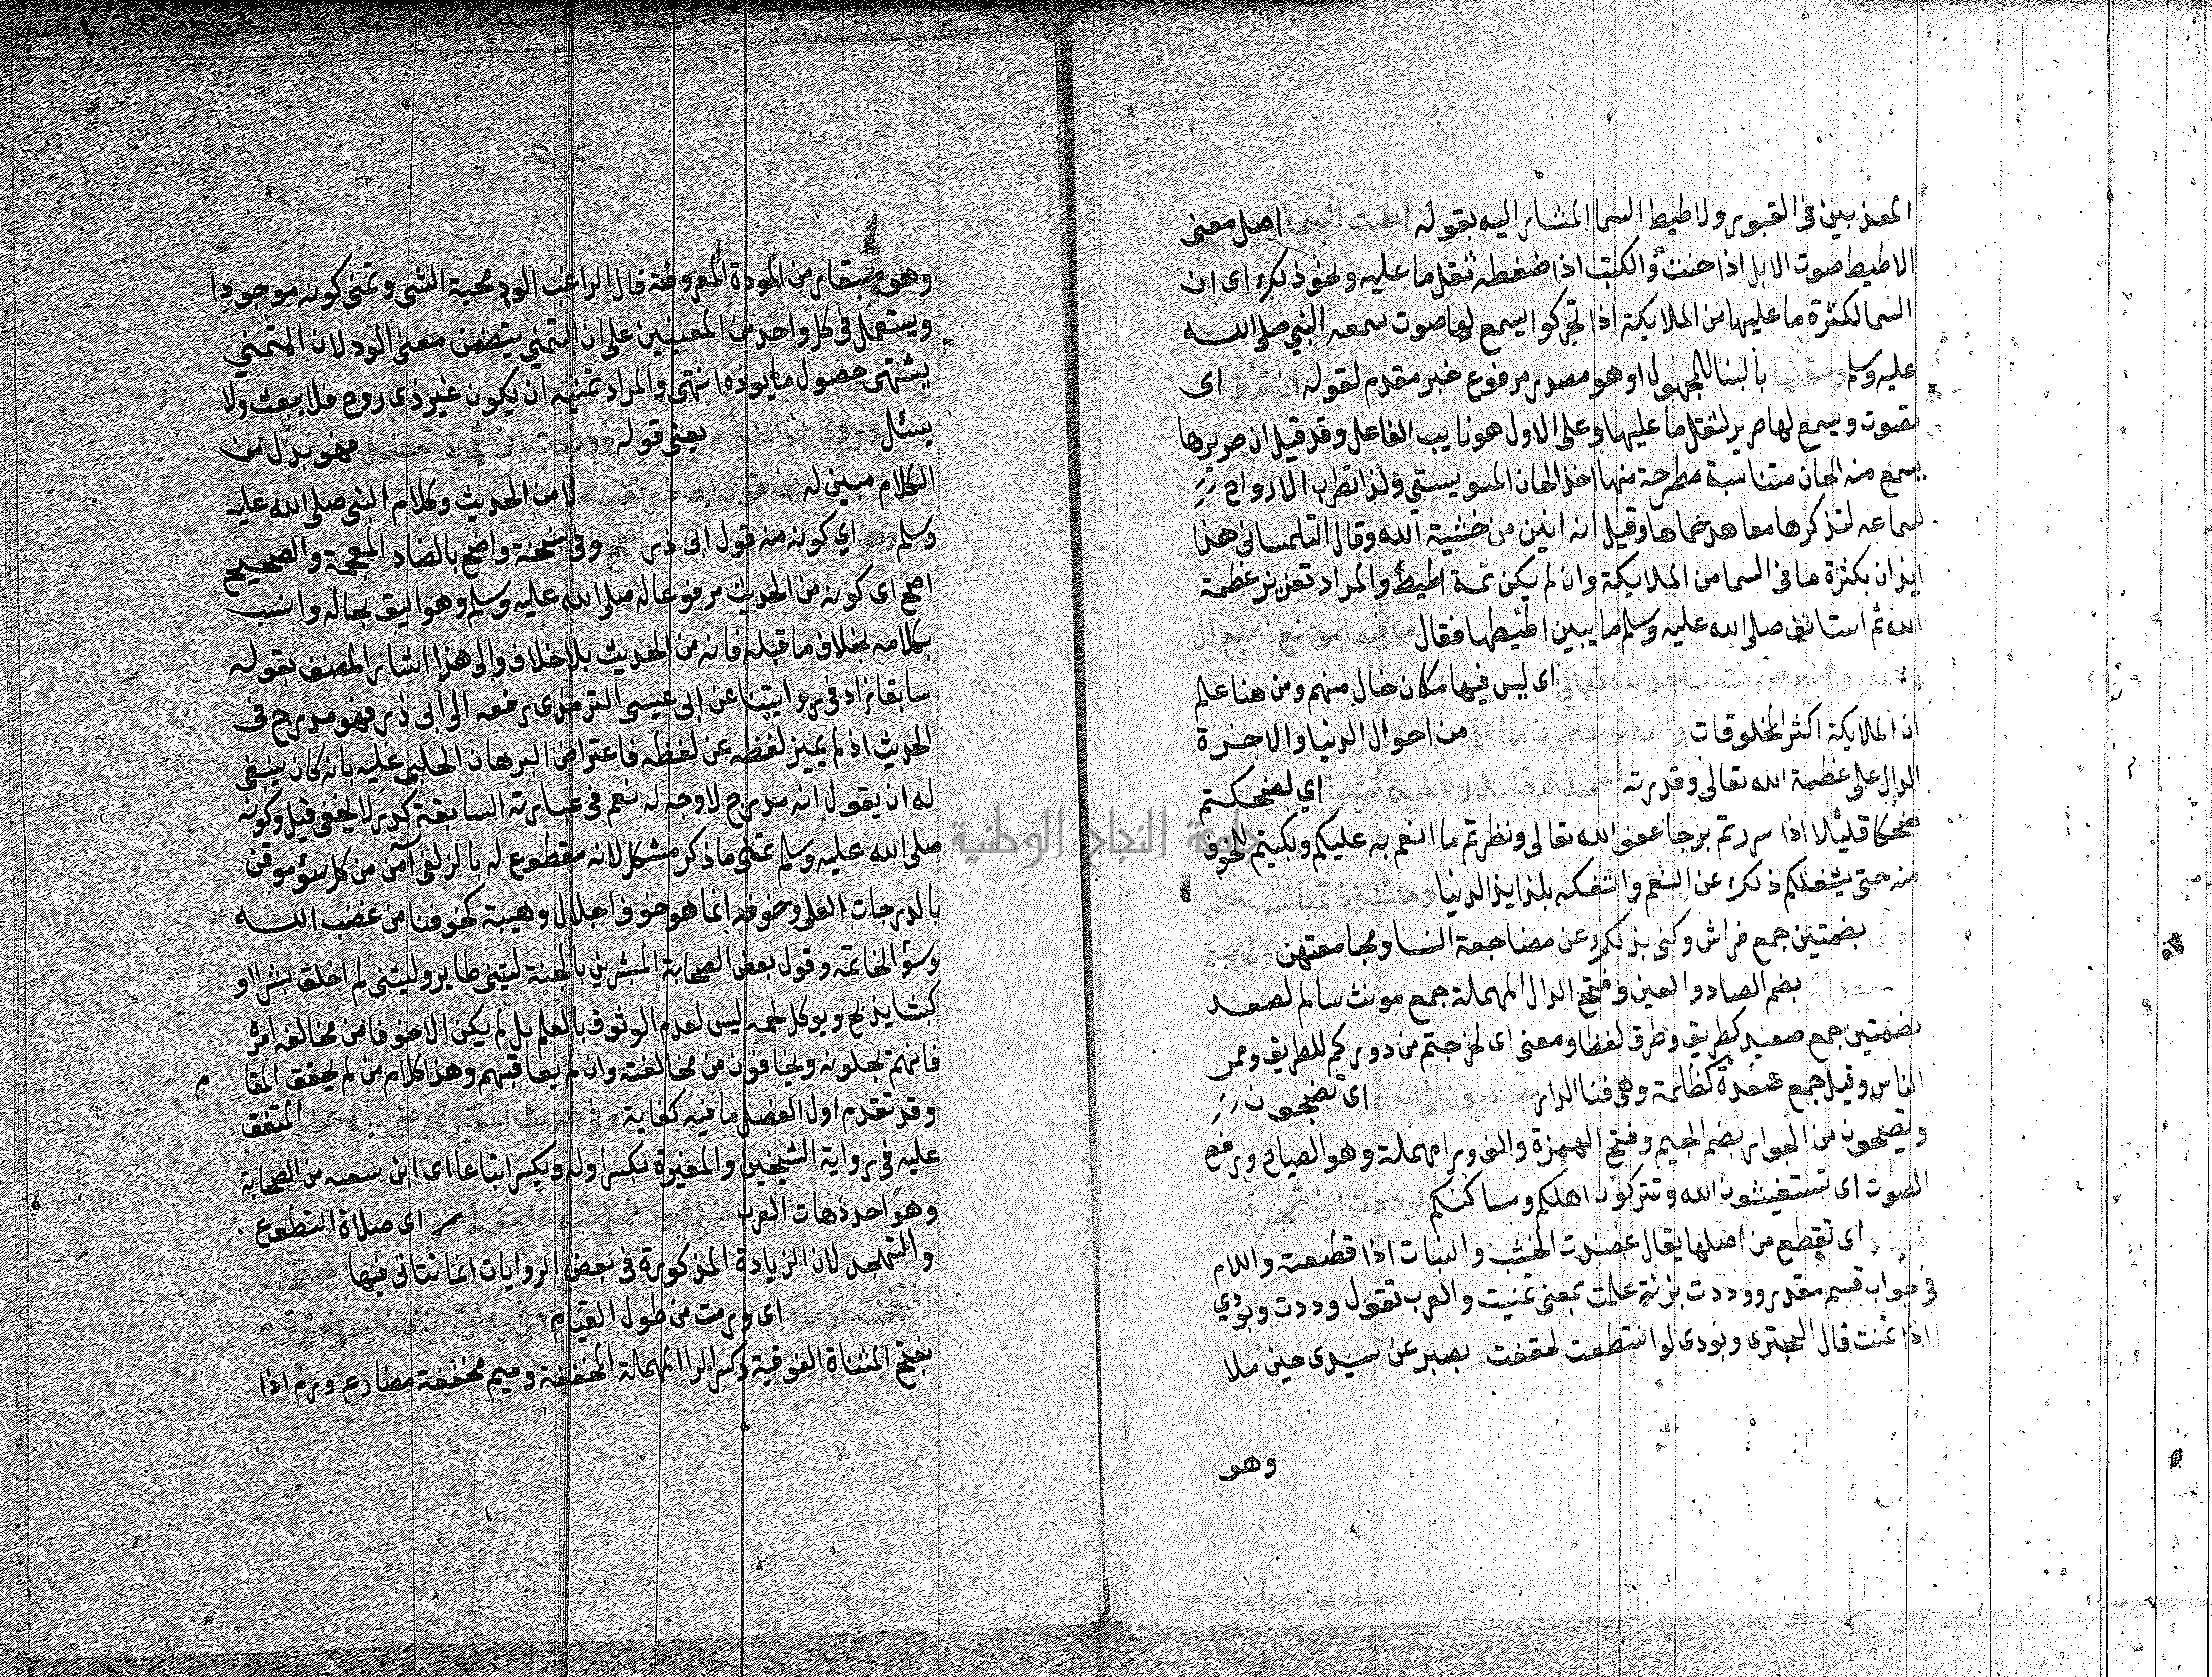 المعذبين في القبور ولاطيط السما المشار اليه بقوله اطت السما اصل معنى
الاطيط صوت الابل اذا حنت والكتب اذا ضغطه ثقل ما عليه ونحو ذلك اى ان
السما لكثرة ما عليها من الملايكة اذا تحركوا يسمع لها صوت سمعه النبي صلى الله
عليه وسلم بالبنا للمجهول او هو مصدر مرفوع خبر مقدم لقوله ان تئط اى
تصوت ويسمع لها صرير لثقل ما عليها وعلى الاول هو نايب الفاعل وقد قيل ان صريرها
يسمع منه الحان متناسبة مطرحة منها اخذ الحان الموسيستي ولذا تطرب الارواح
لسماعه لتذكرها معاهد حماها وقيل انه انين من خشية الله وقال التلمساني هذا
ايذان بكثرة ما في السما من الملايكة وان لم يكن ثمة اطيط والمراد تعزيز عظمة
الله ثم استانف صلى الله عليه وسلم ما يبين اطيطها فقال ما فيها موضع اربع ال
واضع جبهته ساجدا لله تعالى اى ليس فيها مكان خال منهم ومن هنا علم
ان الملايكة اكثر المخلوقات والله لو تعلمون ما اعلم من احوال الدنيا والاخرة
الدال على عظمة الله تعالى وقدرته لضحكتم قليلا ولبكيتم كثيرا اي لضحكتم
ضحكا قليلا اذا سررتم برجا عفو الله تعالى ونظرتم ما انعم به عليكم وبكيتم للخوف
منه حتى يشغلكم ذلك عن النعم والتفكه بلذايذ الدنيا وما تلذذتم بالنسا على
بضمتين جمع فراش وكنى بذلك عن مضاجعة النسا ومجامعتهن ولخرجتم
بضم الصاد والعين وفتح الدال المهملة جمع مونث سالم لصعد
بضمتين جمع صعيد كطريق وطرق لفظا ومعنى اى لخرجتم من دوركم للطريق وممر
الناس وقيل جمع صعدة كظلمة وهي فنا الدار تجارون الى الله اى تضجون
وتصيحون من الجوار بضم الجيم وفتح الهمزة والف ورا مهملة وهو الصياح ورفع
الصوت اى تستغيثون الله وتتركون اهلكم ومساكنكم لوددت اني شجرة
اى تقطع من اصلها يقال عضدت الخشب والنبات اذا قطعته واللام
في جواب قسم مقدر ووددت بزنة علمت بمعنى تمنيت والعرب تقول وددت وبودي
اذا تمنت قال البحترى وبودى لو استطعت لخففت بصبر عن سيدى حين ملا
وهو
وهو مستعار من المودة المعروفة قال الراغب الود محبة الشي وتمنى كونه موجودا
ويستعمل في كل واحد من المعنيين على ان التمني يتضمن معنى الود لان التمني
يشتهى حصول ما يوده انتهى والمراد تمنيه ان يكون غير ذى روح فلا يبعث ولا
يسئل وروى هذا الكلام يعني قوله ووددت اني شجرة تعضد فهو بدل من
الكلام مبين له من قول ابي ذر نفسه لا من الحديث وكلام النبي صلى الله عليه
وسلم وهو اي كونه من قول ابى ذر اصح وفي نسخة واضح بالضاد المعجمة والصحيح
اصح اى كونه من الحديث مرفوعا له صلى الله عليه وسلم وهو اليق بحاله وانسب
بكلامه بخلاف ما قبله فانه من الحديث بلا خلاف والى هذا اشار المصنف بقوله
سابقا زاد في روايتنا عن ابى عيسى الترمذى رفعه الى ابى ذر فهو مدرج فى
الحديث اذ لم يميز لفظه عن لفظه فاعتراض البرهان الحلبي عليه بانه كان ينبغى
له ان يقول انه مدرج لا وجه له نعم فى عبارته السابقة كدر لا يخفى قيل وكونه
صلى الله عليه وسلم تمنى ما ذكر مشكل لانه مقطوع له بالزلفى آمن من كل سوء موقن
بالدرجات العلى وخوفه انما هو خوف اجلال وهيبة كخوفنا من غضب الله
وسؤ الخاتمه وقول بعض الصحابة المبشرين بالجنة ليتنى طاير وليتنى لم اخلق بشرا او
كبشا يذبح ويوكل لحمه ليس لعدم الوثوق بالعلم بل لم يكن الا خوفا من مخالفه امره
فانهم يجلونه ويخافون من مخالفته وان لم يعاقبهم وهذا كلام من لم يحقق المقا م
وقد تقدم اول الفصل ما فيه كفاية وفي حديث المغيرة رضى الله عنه المتفق
عليه فى رواية الشيخين والمغيرة بكسر اوله ويكسر اتباعا اى ابن سعبه من الصحابة
وهو احد دهات العرب صلى رسول الله صلى الله عليه وسلم اى صلاة التطوع
والتهجد لان الزيادة المذكورة فى بعض الروايات انما تتاتى فيها حتى
انتفخت قدماه اى ورمت من طول القيام وفي رواية انه كان يصلى حتى ترم
بفتح المثناة الفوقية وكسر الرا المهملة المخففة وميم مخففة مضارع ورم اذا
جامعة النجاح الوطنية